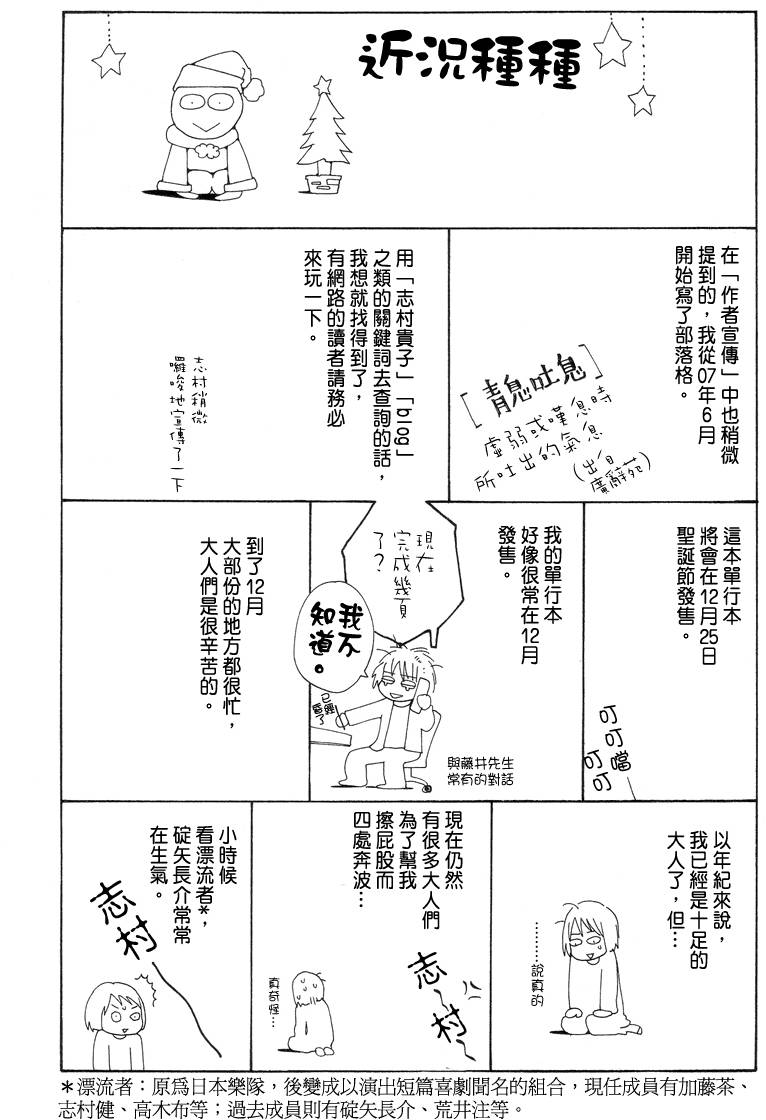 近況種種
在「作者宣傳」中也稍微
提到的，我從07年6月
開始寫了部落格。
[青息吐息]
虛弱或嘆息時
所吐出的氣息
(出自
廣辭苑)
用「志村貴子」「blog」
之類的關鍵詞去查詢的話，
我想就找得到了，
有網路的讀者請務必
來玩一下。
志村稍微
囉唆地宣傳了一下
這本單行本
將會在12月25日
聖誕節發售。
叮叮噹
叮叮
我的單行本
好像很常在12月
發售。
現在
完成幾頁
了？
我不
知道。
已經
昏了
與藤井先生
常有的對話
到了12月
大部份的地方都很忙，
大人們是很辛苦的。
以年紀來說，
我已經是十足的
大人了，但…
………說真的
現在仍然
有很多大人們
為了幫我
擦屁股而
四處奔波…
志～村～
真奇怪…
小時候
看漂流者*，
碇矢長介常常
在生氣。
志村
＊漂流者：原爲日本樂隊，後變成以演出短篇喜劇聞名的組合，現任成員有加藤茶、
志村健、高木布等；過去成員則有碇矢長介、荒井注等。